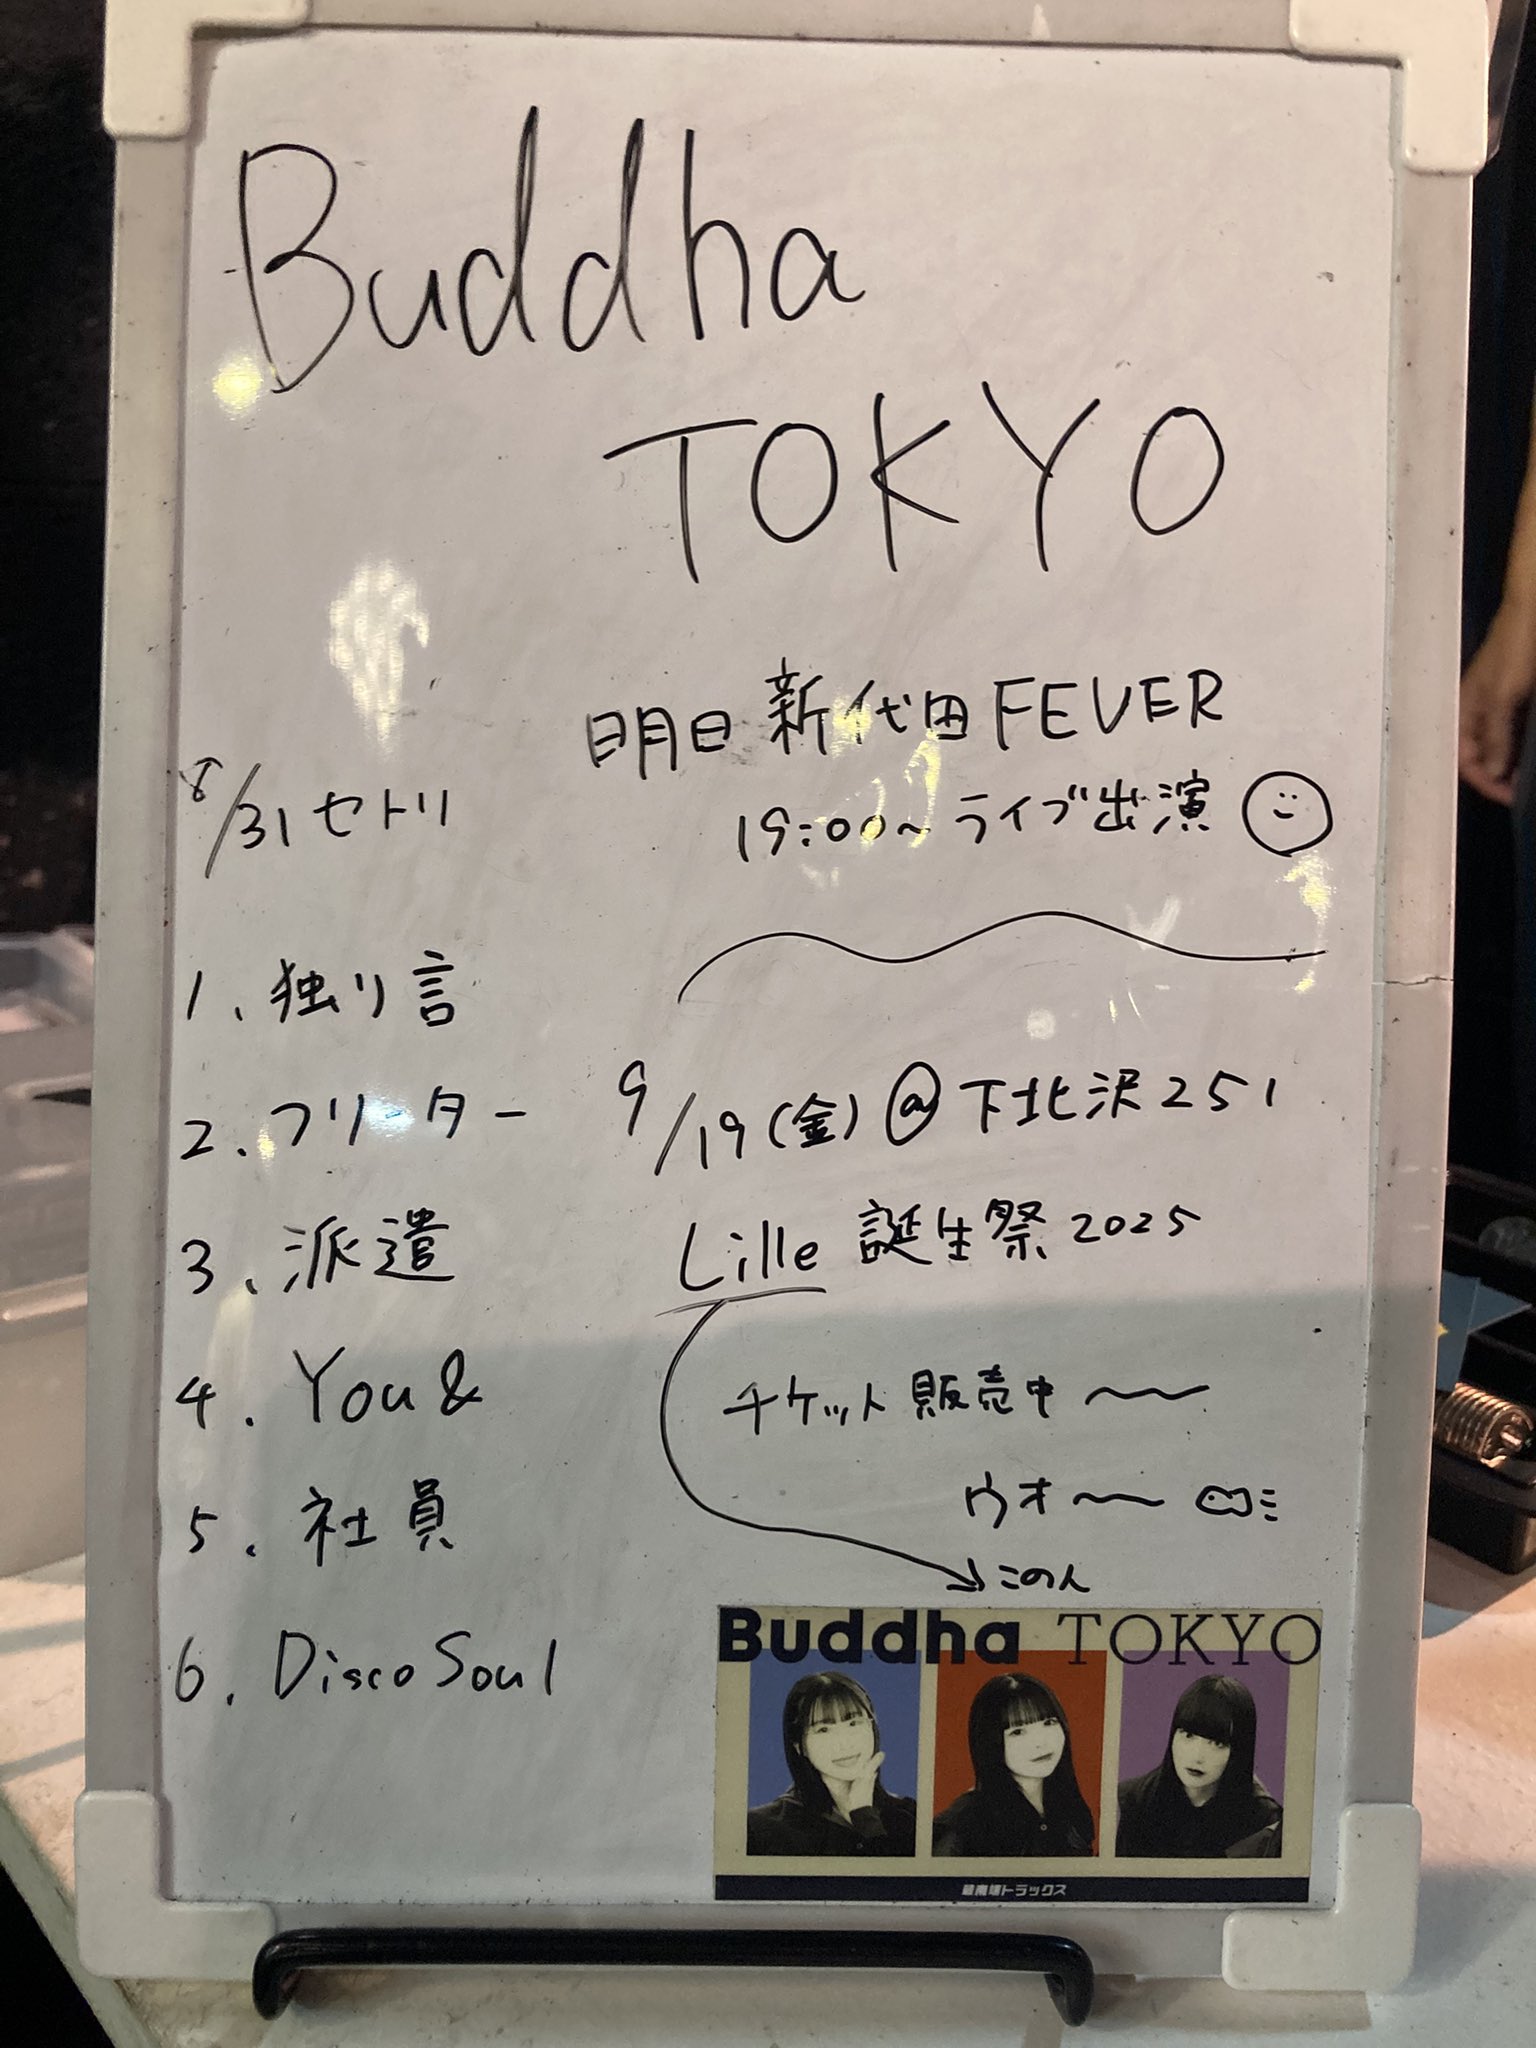 Buddha
TOKYO
明日 新代田 FEVER
19:00~ ライブ出演
8/31 セトリ
1. 独り言
2. フリーター
3. 派遣
4. You &
5. 社員
6. Disco Soul
9/19 (金) @ 下北沢 251
Lille 誕生祭 2025
チケット販売中 〜〜
ウオ 〜〜
このん
Buddha TOKYO
トラックス